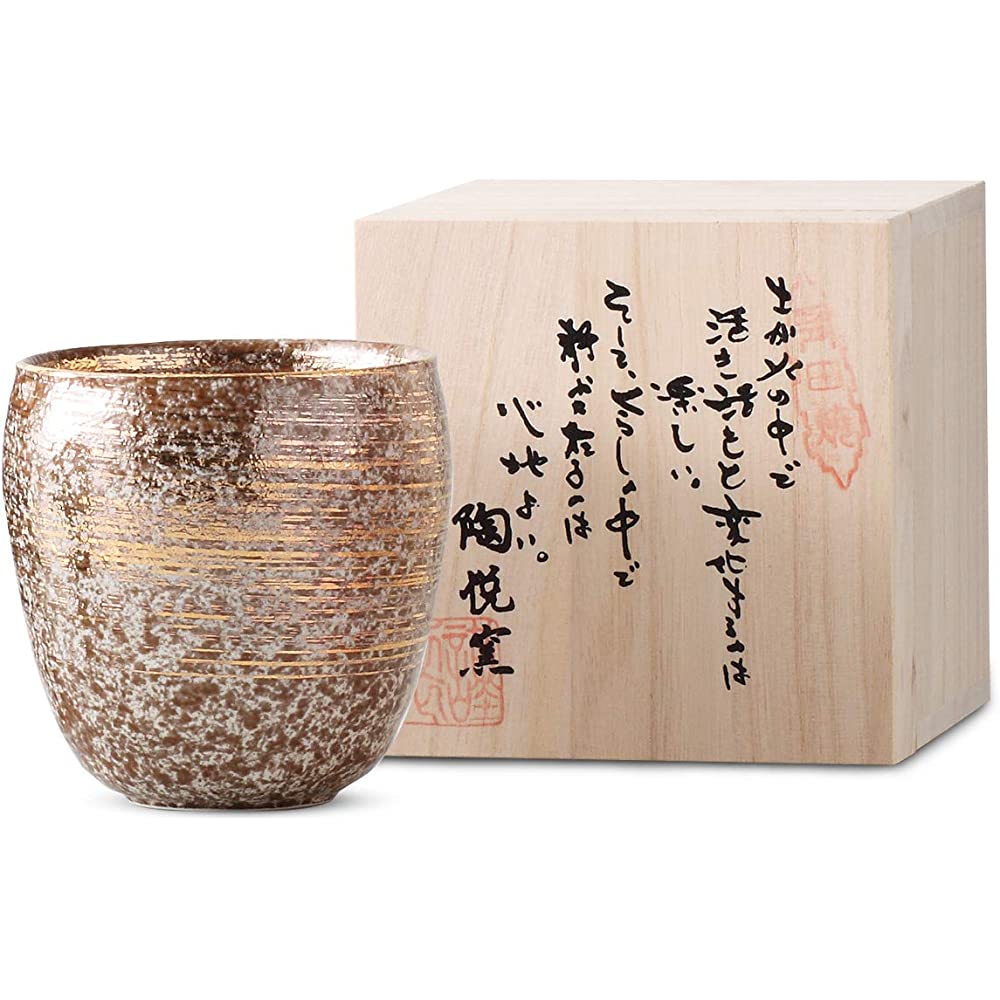 有田焼
土が火の中で
活き活きと変化するのは
楽しい。
そして、くらしの中で
のは
心地よい。
陶悦窯